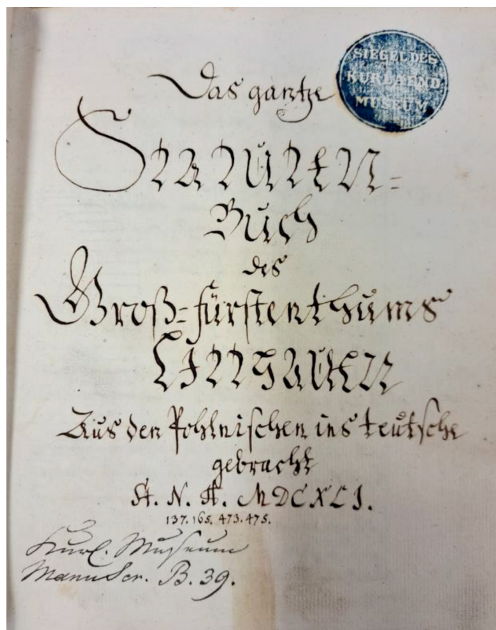 SIEGEL DES
KURLAEND
MUSEUM
Das gantze
STATUTEN-
Buch
des
Groß-fürstenthums
LITTHAUEN
Aus den Pohlnischen ins teutsche
gebracht
A. N. A. MDCXLI.
137. 165. 473. 475.
Kurl. Museum
Manuscr. B. 39.